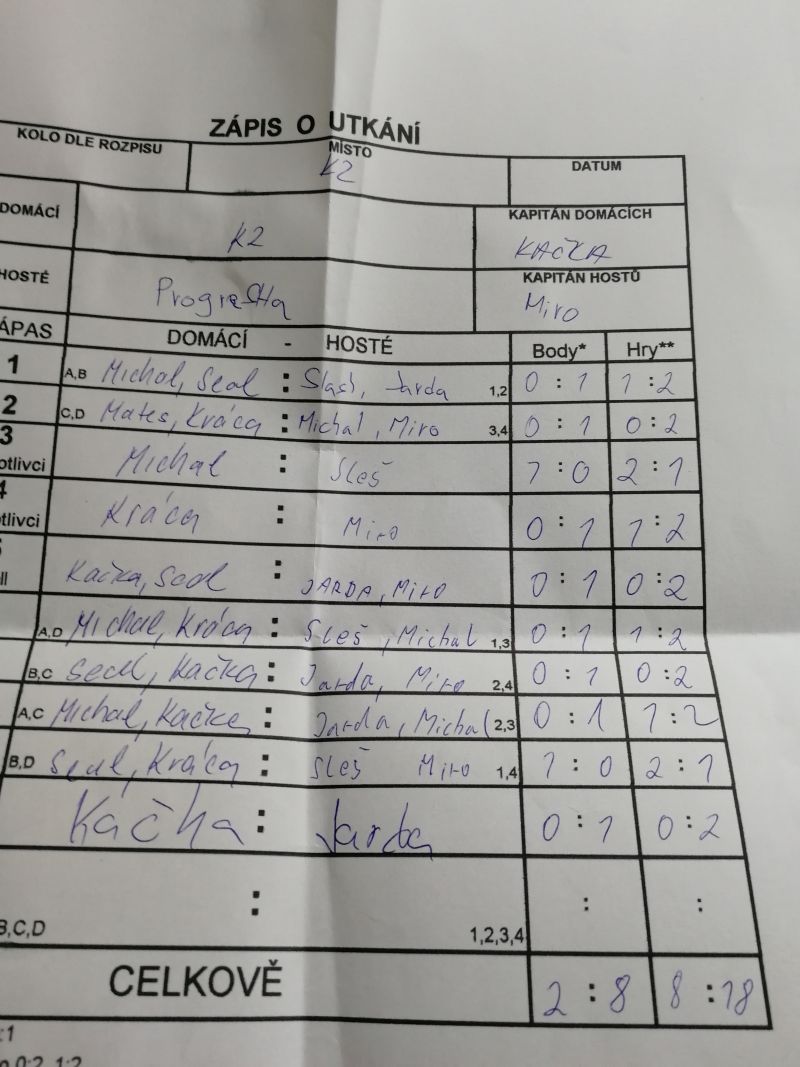 ZÁPIS O UTKÁNÍ
KOLO DLE ROZPISU MÍSTO DATUM
K2
DOMÁCÍ K2 KAPITÁN DOMÁCÍCH
KAČKA
HOSTÉ KAPITÁN HOSTŮ
Miro
ÁPAS DOMÁCÍ - HOSTÉ Body* Hry**
1 A,B Michal, Sedl : Slash, Jarda 1,2 0 : 1 1 : 2
2 C,D Mates, Kráca : Michal, Miro 3,4 0 : 1 0 : 2
3 otlivci Michal : Sleš 1 : 0 2 : 1
4 tlivci Kráca : Miro 0 : 1 1 : 2
ll Kačka, Sedl : JARDA, MIRO 0 : 1 0 : 2
A,D Michal, Kráca : Sleš, Michal 1,3 0 : 1 1 : 2
B,C Sedl, Kačka : Jarda, Miro 2,4 0 : 1 0 : 2
A,C Michal, Kačka : Jarda, Michal 2,3 0 : 1 1 : 2
B,D Sedl, Kráca : Sleš Miro 1,4 1 : 0 2 : 1
Kačka : Jarda 0 : 1 0 : 2
: : :
B,C,D 1,2,3,4
CELKOVĚ 2 : 8 8 : 18
:1
0:2, 1:2